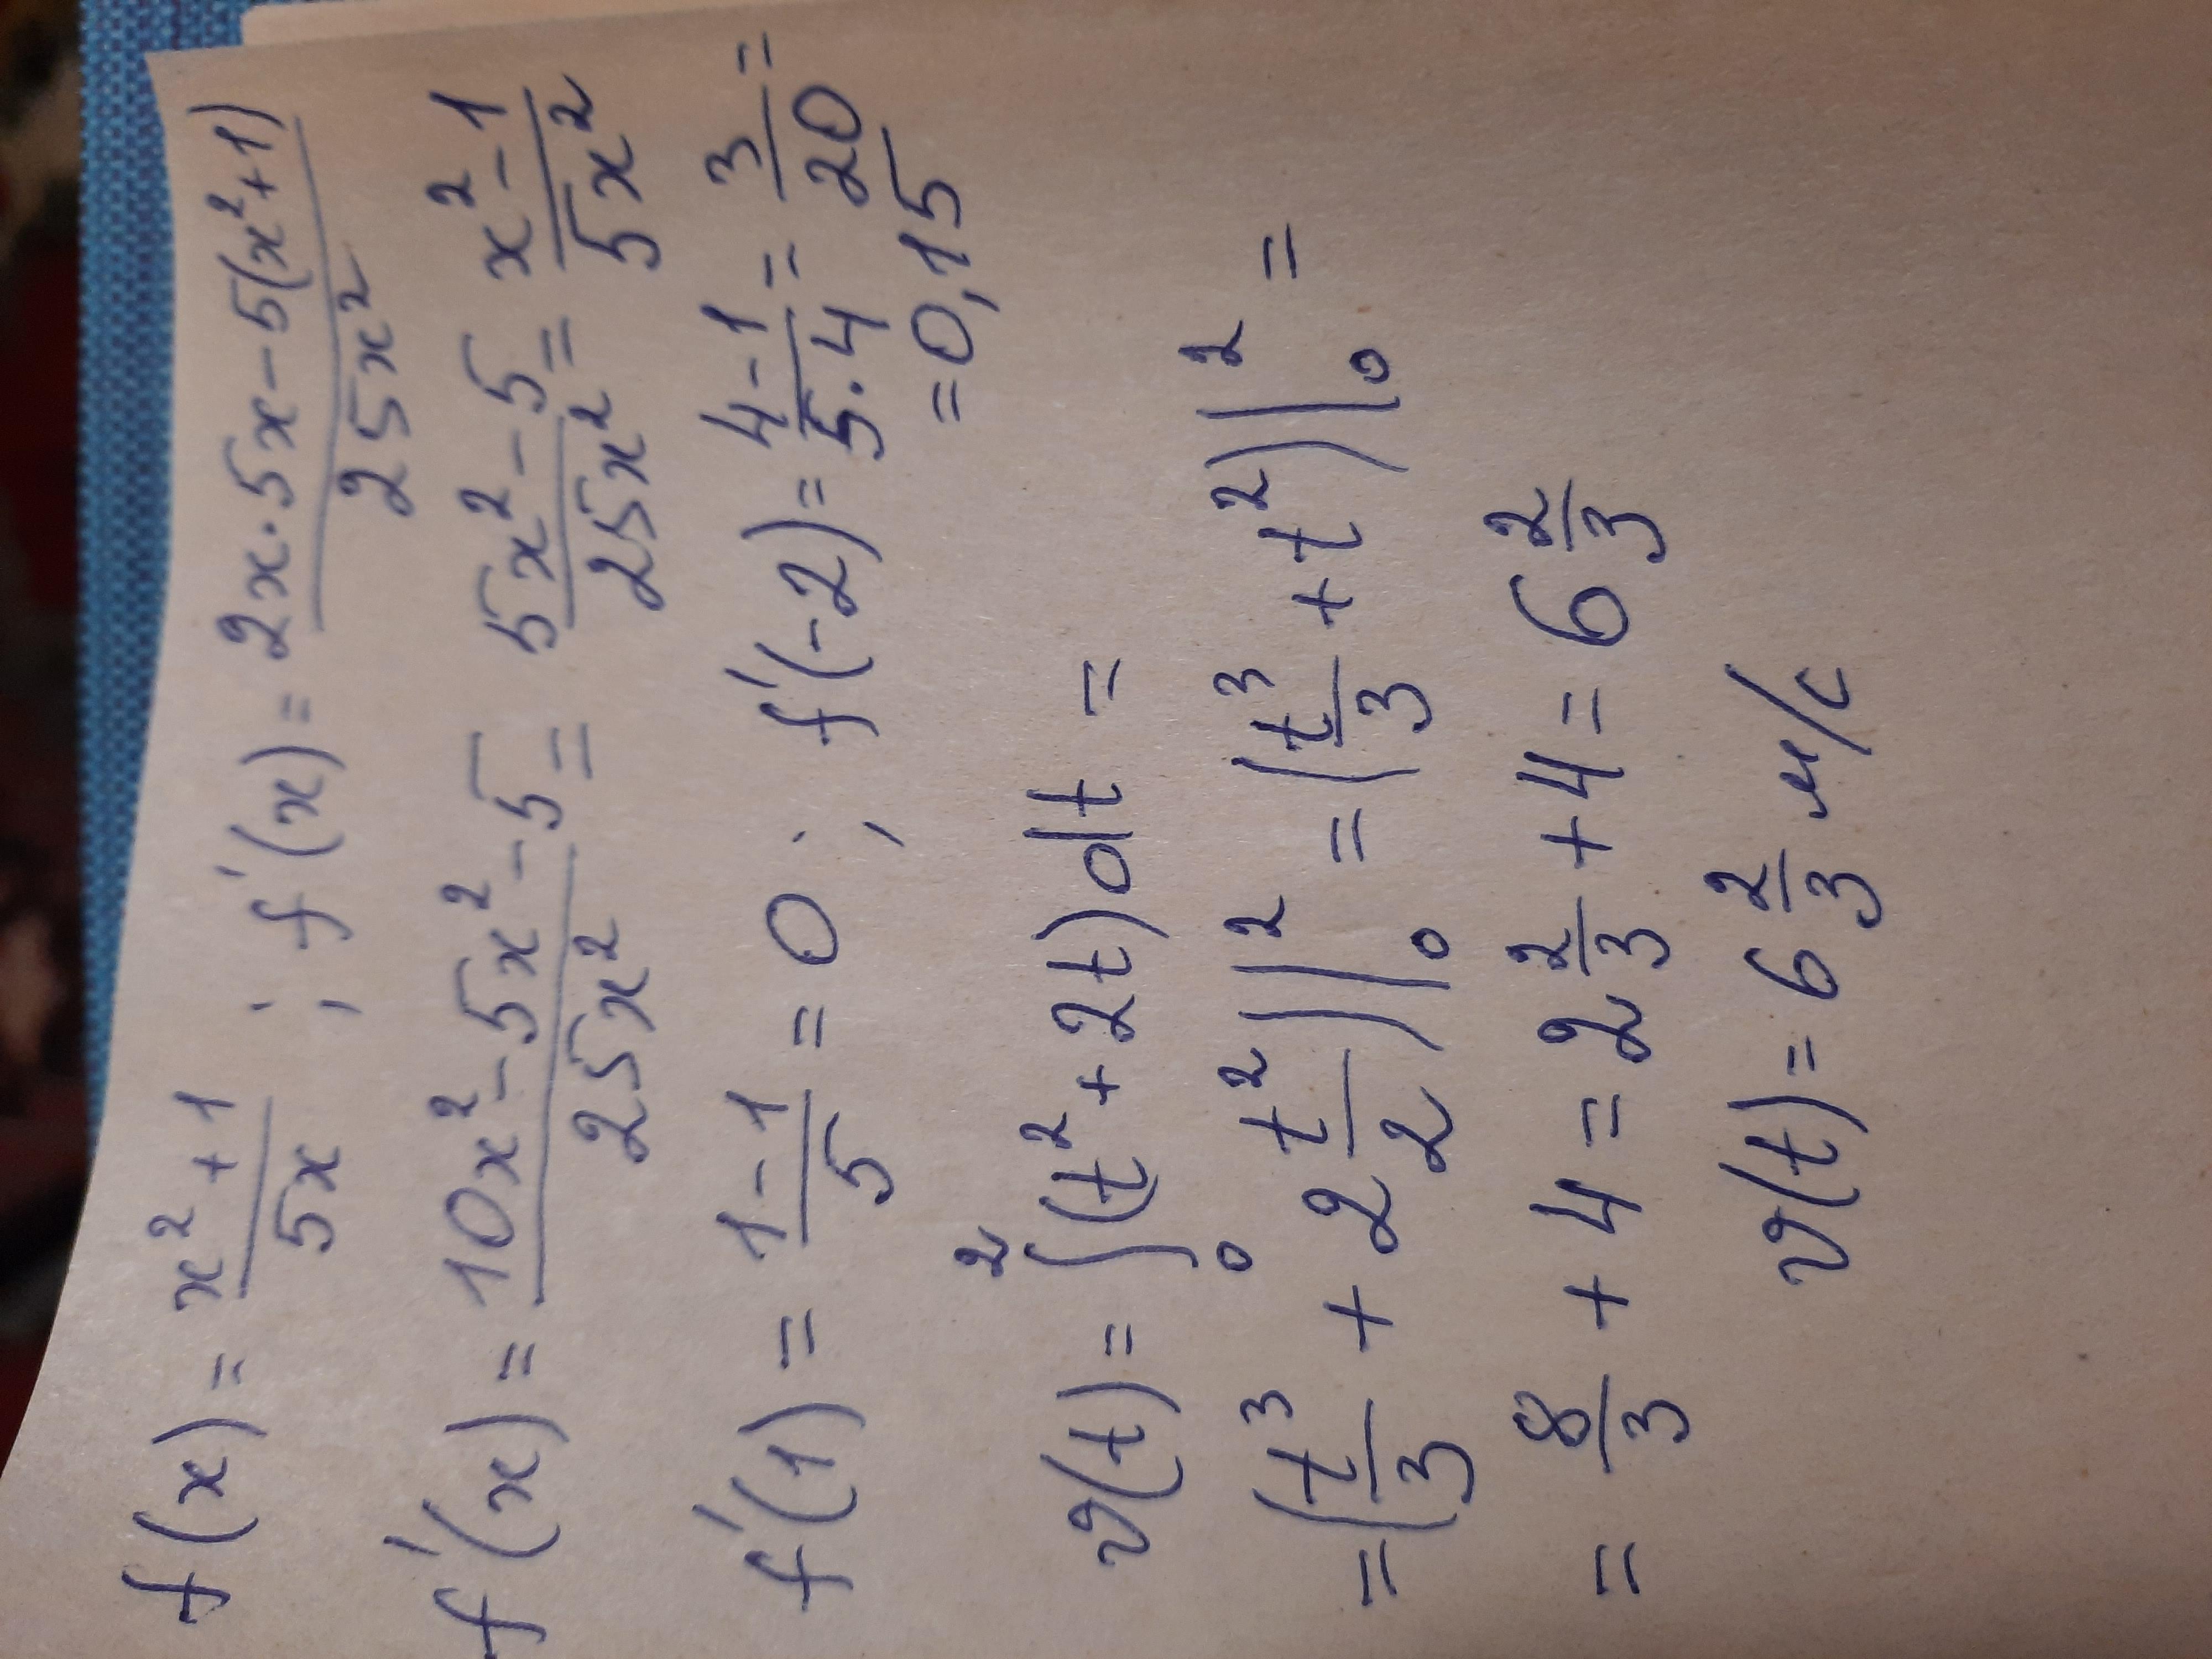 f(x) = (x² + 1)/(5x) ; f'(x) = (2x · 5x − 5(x² + 1))/(25x²)
f'(x) = (10x² − 5x² − 5)/(25x²) = (5x² − 5)/(25x²) = (x² − 1)/(5x²)
f'(1) = (1 − 1)/5 = 0 ; f'(−2) = (4 − 1)/(5 · 4) = 3/20 =
= 0,15
v(t) = ∫₀² (t² + 2t) dt =
= (t³/3 + 2 t²/2)|₀² = (t³/3 + t²)|₀² =
= 8/3 + 4 = 2 2/3 + 4 = 6 2/3
v(t) = 6 2/3 м/с